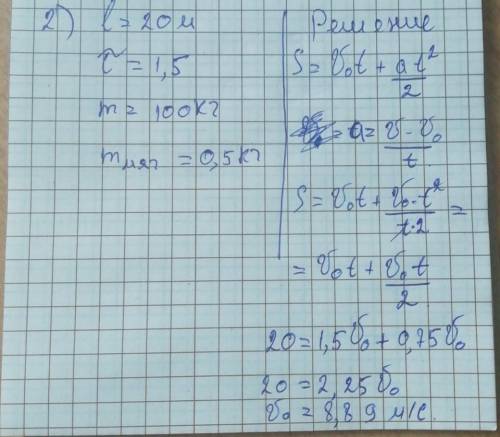 2) l = 20 м
τ = 1,5
m = 100 кг
m мяч = 0,5 кг
Решение
S = v₀t + at²/2
= a = v - v₀/t
S = v₀t + v₀·t²/t·2 =
= v₀t + v₀t/2
20 = 1,5v₀ + 0,75v₀
20 = 2,25v₀
v₀ = 8,89 м/с.